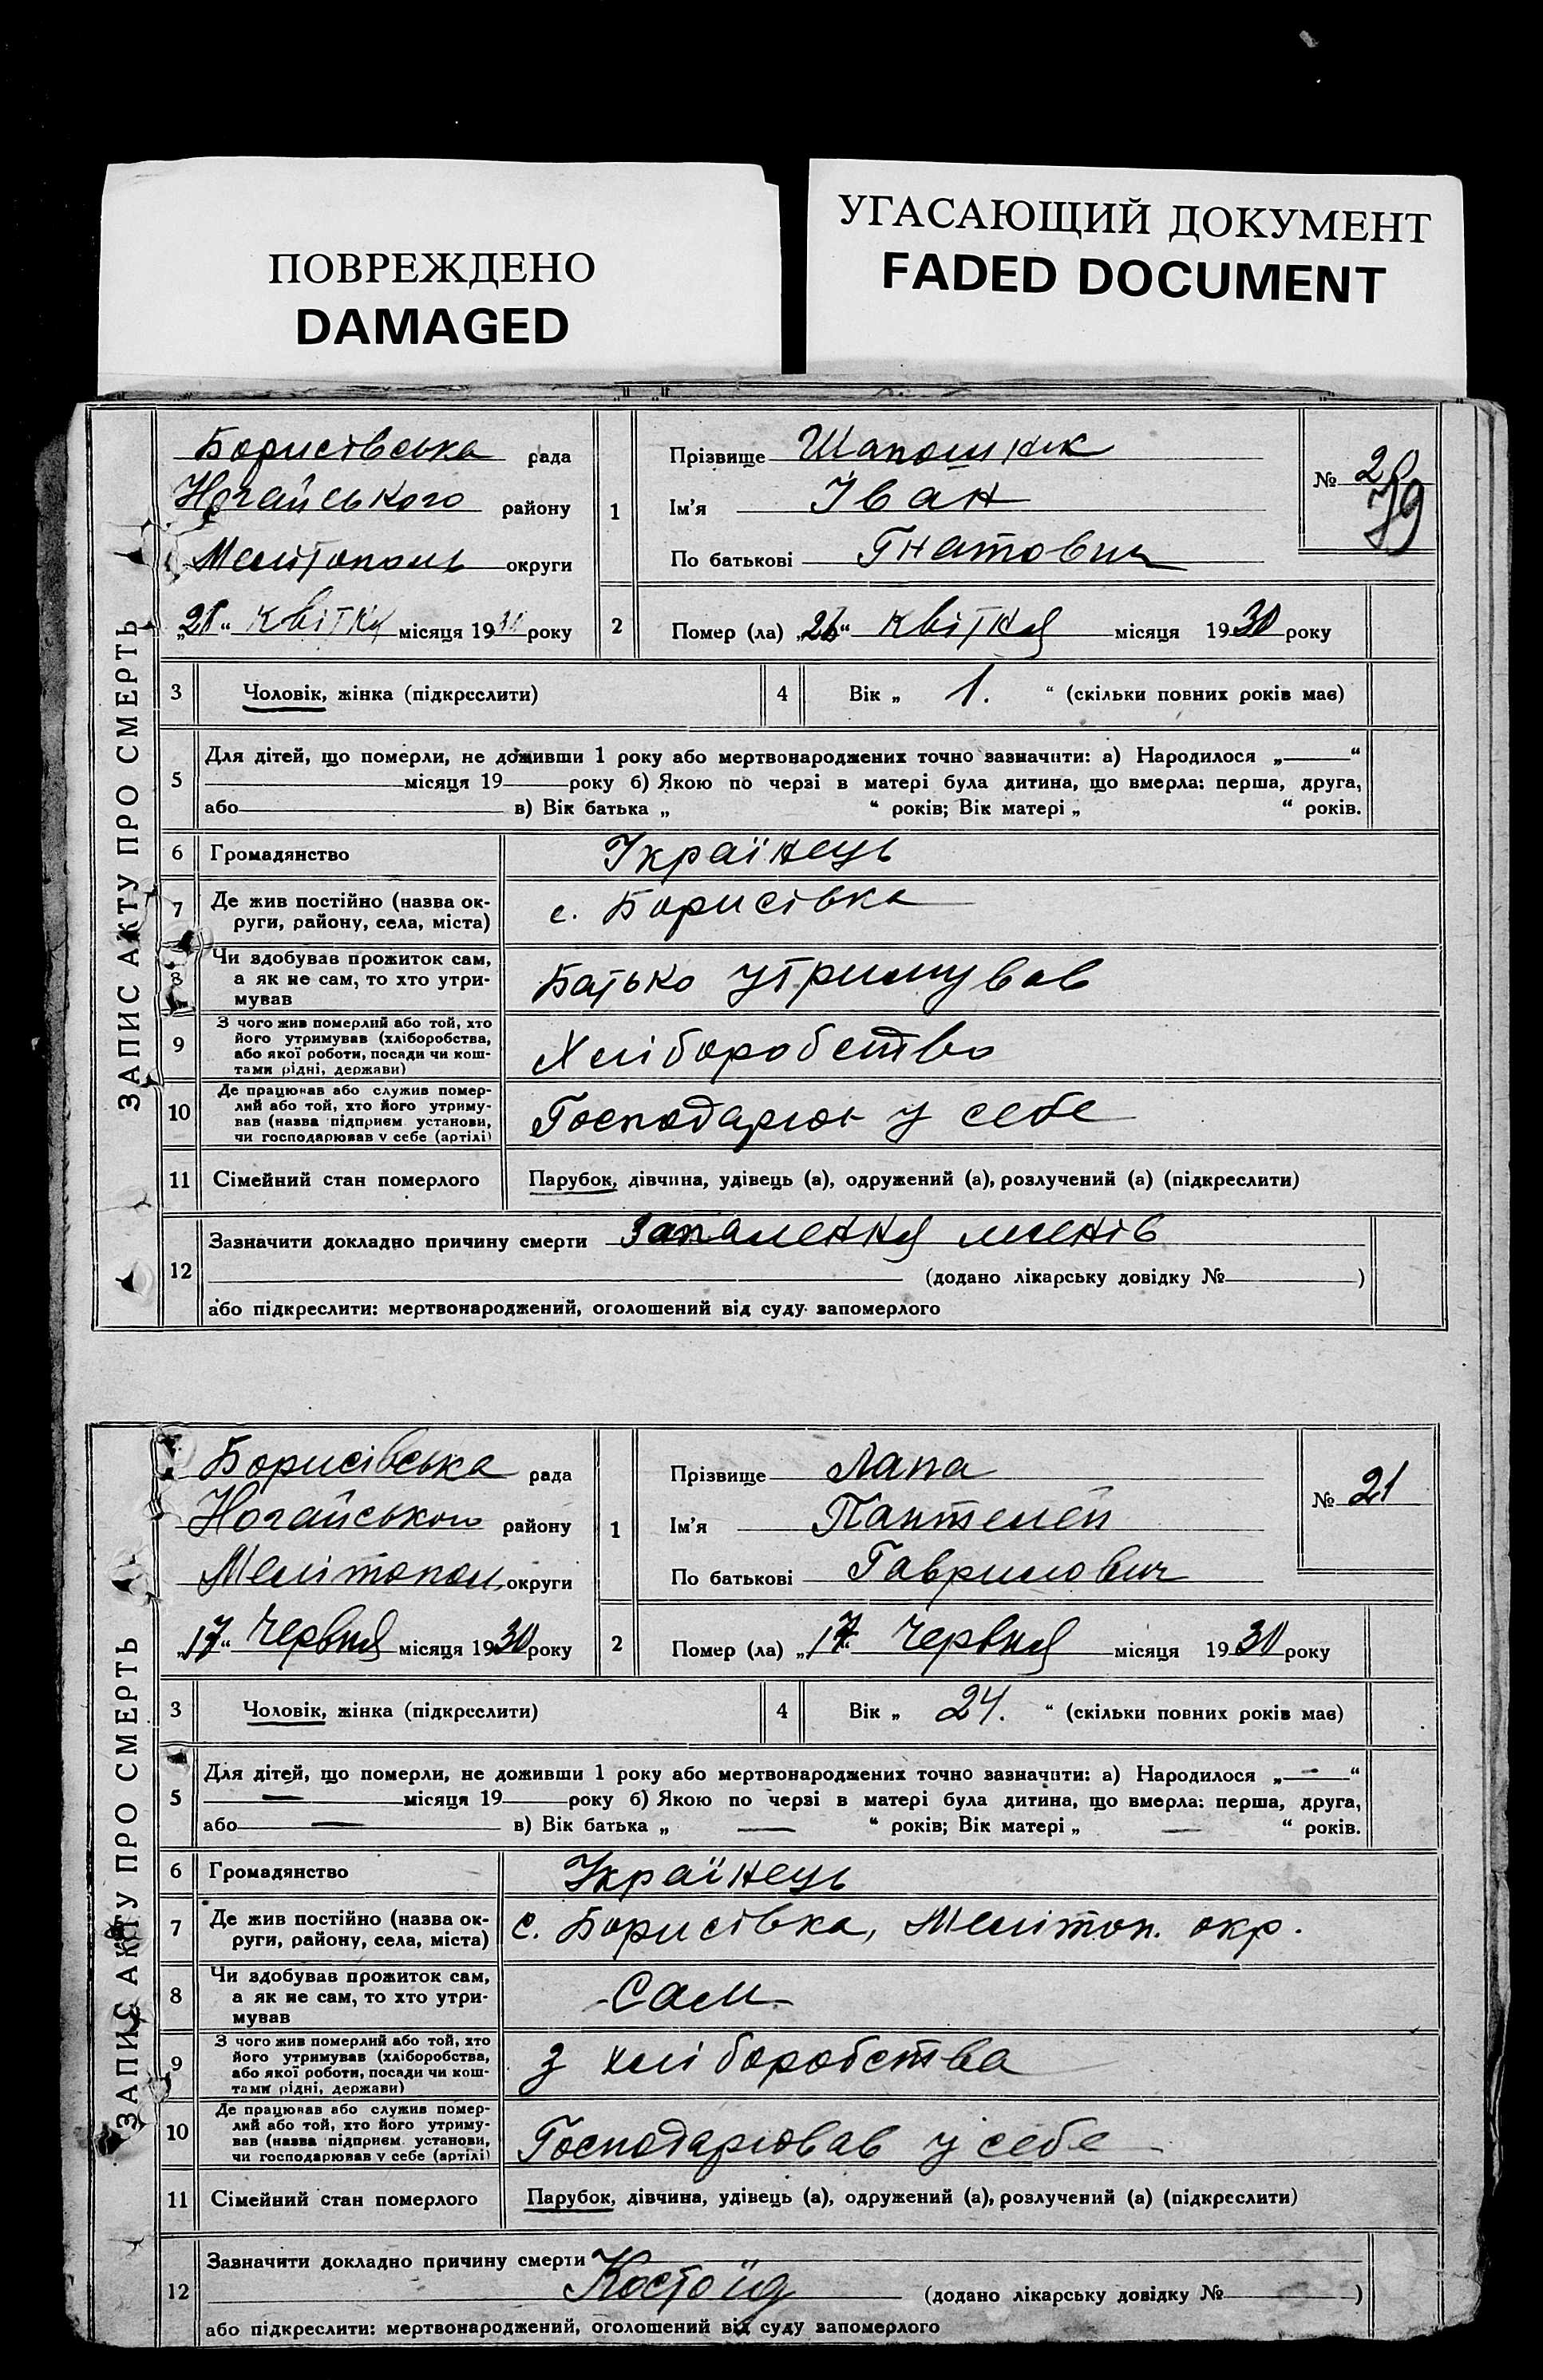 ПОВРЕЖДЕНО
DAMAGED
УГАСАЮЩИЙ ДОКУМЕНТ
FADED DOCUMENT
ЗАПИС АКТУ ПРО СМЕРТЬ
Борисівська рада
Ногайського району
Мелітополь округи
„ “ квітня місяця 1930 року
1
Прізвище Шапошник
Ім'я Іван
По батькові Гнатович
№ 20
79
2 Помер (ла) „26“ квітня місяця 1930 року
3 Чоловік, жінка (підкреслити)
4 Вік „ 1. “ (скільки повних років має)
5 Для дітей, що померли, не доживши 1 року або мертвонароджених точно зазначити: а) Народилося „ “
місяця 19 року б) Якою по черзі в матері була дитина, що вмерла: перша, друга,
або в) Вік батька „ “ років; Вік матері „ “ років.
6 Громадянство Українець
7 Де жив постійно (назва ок-
руги, району, села, міста) с. Борисівка
8 Чи здобував прожиток сам,
а як не сам, то хто утри-
мував Батько утримував
9 З чого жив померлий або той, хто
його утримував (хліборобства,
або якої роботи, посади чи кош-
тами рідні, держави) Хліборобство
10 Де працював або служив помер-
лий або той, хто його утриму-
вав (назва підприєм. установи,
чи господарював у себе (артілі) у себе
11 Сімейний стан померлого Парубок, дівчина, удівець (а), одружений (а), розлучений (а) (підкреслити)
12 Зазначити докладно причину смерти Запалення легенів
(додано лікарську довідку № )
або підкреслити: мертвонароджений, оголошений від суду запомерлого
ЗАПИС АКТУ ПРО СМЕРТЬ
Борисівська рада
Ногайського району
Мелітопол. округи
„17“ Червня місяця 1930 року
1
Прізвище Лапа
Ім'я Пантелей
По батькові Гаврилович
№ 21
2 Помер (ла) „17“ Червня місяця 1930 року
3 Чоловік, жінка (підкреслити)
4 Вік „ 24. “ (скільки повних років має)
5 Для дітей, що померли, не доживши 1 року або мертвонароджених точно зазначити: а) Народилося „—“
— місяця 19 року б) Якою по черзі в матері була дитина, що вмерла: перша, друга,
або — в) Вік батька „ — “ років; Вік матері „ — “ років.
6 Громадянство Українець
7 Де жив постійно (назва ок-
руги, району, села, міста) с. Борисівка, Мелітоп. окр.
8 Чи здобував прожиток сам,
а як не сам, то хто утри-
мував Сам
9 З чого жив померлий або той, хто
його утримував (хліборобства,
або якої роботи, посади чи кош-
тами рідні, держави) З хліборобства
10 Де працював або служив помер-
лий або той, хто його утриму-
вав (назва підприєм. установи,
чи господарював у себе (артілі) Господарював у себе
11 Сімейний стан померлого Парубок, дівчина, удівець (а), одружений (а), розлучений (а) (підкреслити)
12 Зазначити докладно причину смерти
Костоїд (додано лікарську довідку № )
або підкреслити: мертвонароджений, оголошений від суду запомерлого